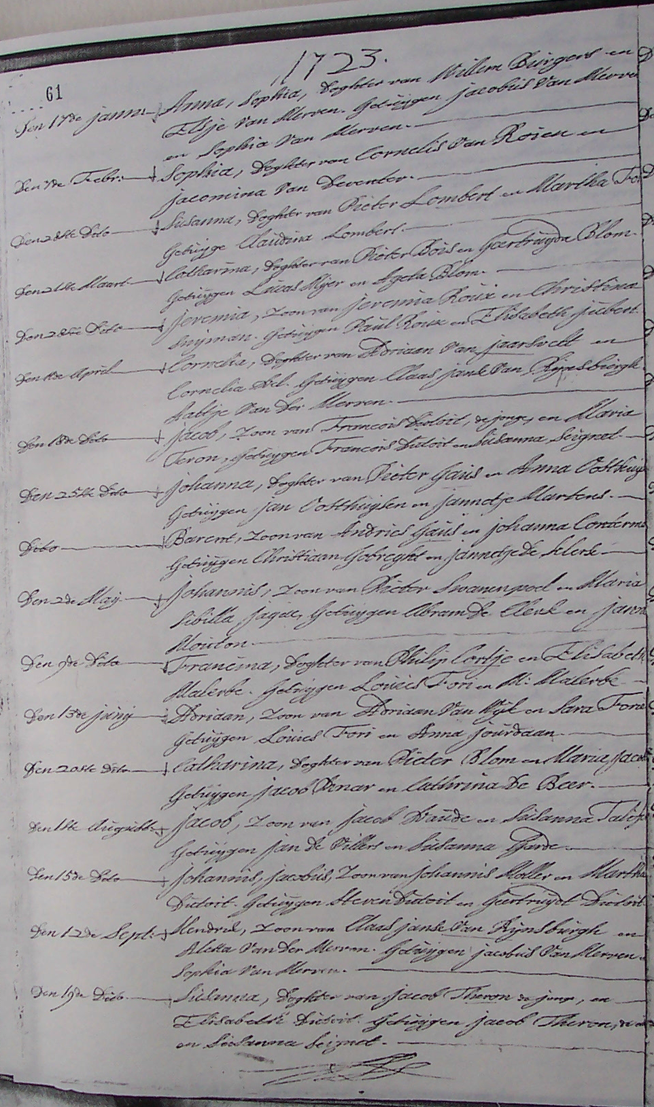 1723.
61
Den 17de janu: Anna, Sophia, Doghter van Willem Bürgers en
Elsje Van Merven. Getuijgen jacobüs Van Merven
en Sophia Van Merven.
Den 7de Febr: Sophia, Doghter van Cornelis Van Rooien en
jacomina Van Deventer.
Den 28ste Dito Susanna, Doghter van Pieter Lombert en Martha
Getuijge Claudina Lombert.
Den 21ste Maart Catharina, Doghter van Pieter Böüs en Geertruijda Blom.
Getuijgen Lucas Mijer en Blom.
Den 28ste Dito Jeremia, Zoon van Jeremia Roüx en Christina
Snijman. Getuijgen Paul Roüx en Elisabeth joübert.
April Cornelia, Doghter van Adriaan Van jaarsveldt en
Cornelia Getuijgen Claas janse Van Rijnsbürgh
Van Der Merven.
Den 18de Dito Jacob, Zoon van Francois Dütoit, de jonge, en Maria
Teron, Getuijgen Francois Dütoit en Susanna Seignet.
Den 25ste Dito Johanna, Doghter van Pieter Gaüs en Anna
Getuijgen jan Oosthuijsen en jannetje Martens.
Dito Barent, Zoon van Andries Gaüs en johanna
Getuijgen Christiaan Gobreght en jannetje De Klerk
Den 2de Maij Johannis, Zoon van Pieter Swanenpoel en Maria
Sibilla Getuijgen Abram De Clerk en
Mouton.
Den 9de Dito Francina, Doghter van Philip en Elisabeth
Malerbe. Getuijgen Louies Fori en M: Malerbe
Den 13de junij Adriaan, Zoon van Adriaan Van Wijk en Sara
Getuijgen Louies Fori en Anna Jourdaan.
Den 20ste Dito Catharina, Doghter van Pieter Blom en Maria
Getuijgen jacob en Cathrina De Beer.
Augusti: Jacob, Zoon van jacob Naüde en Süsanna
Getuijgen jan De Villers en Süsanna
Den 15de Dito Johannis, jacobüs, Zoon van johannis Moller en Martha
Dütoit. Getuijgen Steven Dütoit en Geertruijdt Dütoit
Den 12de Sept: Hendrik, Zoon van Claas janse Van Rijnsbürgh en
Aletta Van Der Merven. Getuijgen jacobüs Van Merven
Sophia Van Merven.
Den 19de Dito Süsanna, Doghter van jacob Theron de jonge, en
Elisabeth Dütoit. Getuijgen jacob Theron,
en Süsanna Seignet.